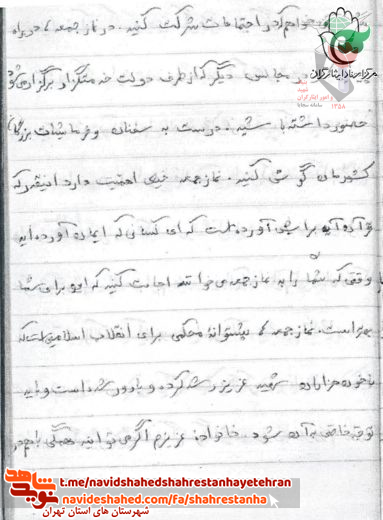 می‌خواهم که در اجتماعات شرکت کنید. در نماز جمعه، در راه
در مجالس دیگر که از طرف دولت خدمتگزار برگزار می‌شود
حضور داشته باشید. درست به سخنان و فرمایشات بزرگان
کشورمان گوش کنید. نماز جمعه خیلی اهمیت دارد اینقدر که
قرآن آیه برایش آورده است که ای کسانی که ایمان آورده‌اید
وقتی که شما را به نماز جمعه می‌خوانند اجابت کنید که این برای شما
بهتر است. نماز جمعه که پشتوانه محکمی برای انقلاب اسلامی است که
با خون هزاران شهید عزیز رشد کرده و بارور شده است و باید
توجه خاصی به آن شود. خانواده عزیزم اگر می‌توانید همگی با هم در
مرکز اسناد ایثارگران
۱۳۵۸
نوید شاهد
t.me/navidshahedshahrestanhayetehran
navideshahed.com/fa/shahrestanha
شهرستان های استان تهران